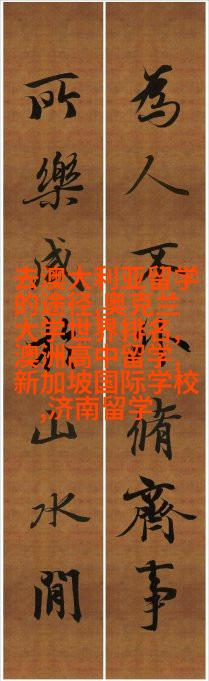 為人不脩齊事
所樂咸山水閒
去澳大利亚留学
的途径,奥克兰
大学世界排名,
澳洲高中留学,
新加坡国际学校
,济南留学